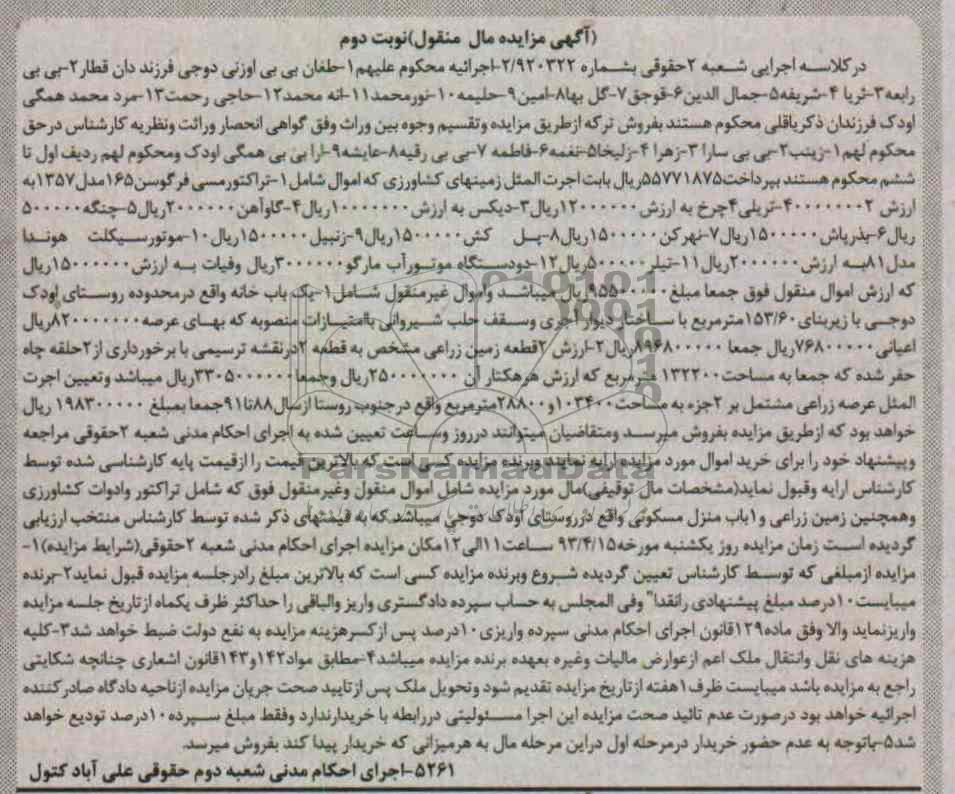 (آگهی مزایده مال منقول)نوبت دوم
درکلاسه اجرایی شعبه ۲حقوقی بشماره ۲/۹۲۰۳۲۲-اجرائیه محکوم علیهم۱-طغان بی بی اوزنی دوجی فرزند دان قطار۲-بی بی
رابعه۳-ثریا ۴-شریفه۵-جمال الدین۶-قوجق۷-گل بها۸-امین۹-حلیمه۱۰-نورمحمد۱۱-انه محمد۱۲-حاجی رحمت۱۳-مرد محمد همگی
اودک فرزندان ذکریاقلی محکوم هستند بفروش ترکه ازطریق مزایده وتقسیم وجوه بین وراث وفق گواهی انحصار وراثت ونظریه کارشناس درحق
محکوم لهم۱-زینب۲-بی بی سارا ۳-زهرا ۴-زلیخا۵-نغمه۶-فاطمه ۷-بی بی رقیه۸-عایشه۹-ارا بی بی همگی اودک ومحکوم لهم ردیف اول تا
ششم محکوم هستند بپرداخت۵۵۷۷۱۸۷۵ریال بابت اجرت المثل زمینهای کشاورزی که اموال شامل۱-تراکتورمسی فرگوسن۱۶۵مدل۱۳۵۷به
ارزش ۴۰۰۰۰۰۰۰۲-تریلی۴چرخ به ارزش۱۲۰۰۰۰۰۰ریال۳-دیکس به ارزش۱۰۰۰۰۰۰۰ریال۴-گاوآهن۲۰۰۰۰۰۰ریال۵-چنگه۵۰۰۰۰۰
ریال۶-بذرپاش۱۵۰۰۰۰۰ریال۷-نهرکن۱۵۰۰۰۰۰ریال۸-پل کش۱۵۰۰۰۰۰ریال۹-زنبیل۱۵۰۰۰۰۰ریال۱۰-موتورسیکلت هوندا
مدل۸۱به ارزش۲۰۰۰۰۰۰ریال۱۱-تیلر۵۰۰۰۰۰ریال۱۲-دودستگاه موتورآب مارگو۳۰۰۰۰۰۰ریال وفیات به ارزش۱۵۰۰۰۰۰۰ریال
که ارزش اموال منقول فوق جمعا مبلغ ریال میباشد واموال غیرمنقول شامل۱-یک باب خانه واقع درمحدوده روستای اودک
دوجی با زیربنای۱۵۳/۶۰مترمربع با ساختار دیوار آجری وسقف حلب شیروانی باامتیازات منصوبه که بهای عرصه۸۲۰۰۰۰۰۰۰ریال
اعیانی۷۶۸۰۰۰۰۰ریال جمعا ۸۹۶۸۰۰۰۰۰ریال۲-ارزش ۲قطعه زمین زراعی مشخص به قطعه ۲درنقشه ترسیمی با برخورداری از۲حلقه چاه
حفر شده که جمعا به مساحت۱۳۲۲۰۰ مترمربع که ارزش هرهکتار آن ۲۵۰۰۰۰۰۰۰ریال وجمعا۳۳۰۵۰۰۰۰۰۰ریال میباشد وتعیین اجرت
المثل عرصه زراعی مشتمل بر ۲جزء به مساحت۱۰۳۴۰۰و۲۸۸۰۰مترمربع واقع درجنوب روستا ازسال۸۸تا۹۱جمعا بمبلغ ۱۹۸۳۰۰۰۰۰ ریال
خواهد بود که ازطریق مزایده بفروش میرسد ومتقاضیان میتوانند درروز وساعت تعیین شده به اجرای احکام مدنی شعبه ۲حقوقی مراجعه
وپیشنهاد خود را برای خرید اموال مورد مزایده ارایه نمایند وبرنده مزایده کسی است که بالاترین قیمت را ازقیمت پایه کارشناسی شده توسط
کارشناس ارایه وقبول نماید(مشخصات مال توقیفی)مال مورد مزایده شامل اموال منقول وغیرمنقول فوق که شامل تراکتور وادوات کشاورزی
وهمچنین زمین زراعی و۱باب منزل مسکونی واقع درروستای اودک دوجی میباشد که به قیمتهای ذکر شده توسط کارشناس منتخب ارزیابی
گردیده است زمان مزایده روز یکشنبه مورخه۹۳/۴/۱۵ ساعت۱۱الی۱۲مکان مزایده اجرای احکام مدنی شعبه ۲حقوقی(شرایط مزایده)۱-
مزایده ازمبلغی که توسط کارشناس تعیین گردیده شروع وبرنده مزایده کسی است که بالاترین مبلغ رادرجلسه مزایده قبول نماید۲-برنده
میبایست۱۰درصد مبلغ پیشنهادی رانقدا" وفی المجلس به حساب سپرده دادگستری واریز والباقی را حداکثر ظرف یکماه ازتاریخ جلسه مزایده
واریزنماید والا وفق ماده۱۲۹قانون اجرای احکام مدنی سپرده واریزی۱۰درصد پس ازکسرهزینه مزایده به نفع دولت ضبط خواهد شد۳-کلیه
هزینه های نقل وانتقال ملک اعم ازعوارض مالیات وغیره بعهده برنده مزایده میباشد۴-مطابق مواد۱۴۲و۱۴۳قانون اشعاری چنانچه شکایتی
راجع به مزایده باشد میبایست ظرف۱هفته ازتاریخ مزایده تقدیم شود وتحویل ملک پس ازتایید صحت جریان مزایده ازناحیه دادگاه صادرکننده
اجرائیه خواهد بود درصورت عدم تائید صحت مزایده این اجرا مسئولیتی دررابطه با خریدارندارد وفقط مبلغ سپرده۱۰درصد تودیع خواهد
شد۵-باتوجه به عدم حضور خریدار درمرحله اول دراین مرحله مال به هرمیزانی که خریدار پیدا کند بفروش میرسد.
۵۲۶۱-اجرای احکام مدنی شعبه دوم حقوقی علی آباد کتول
ParsNamadData